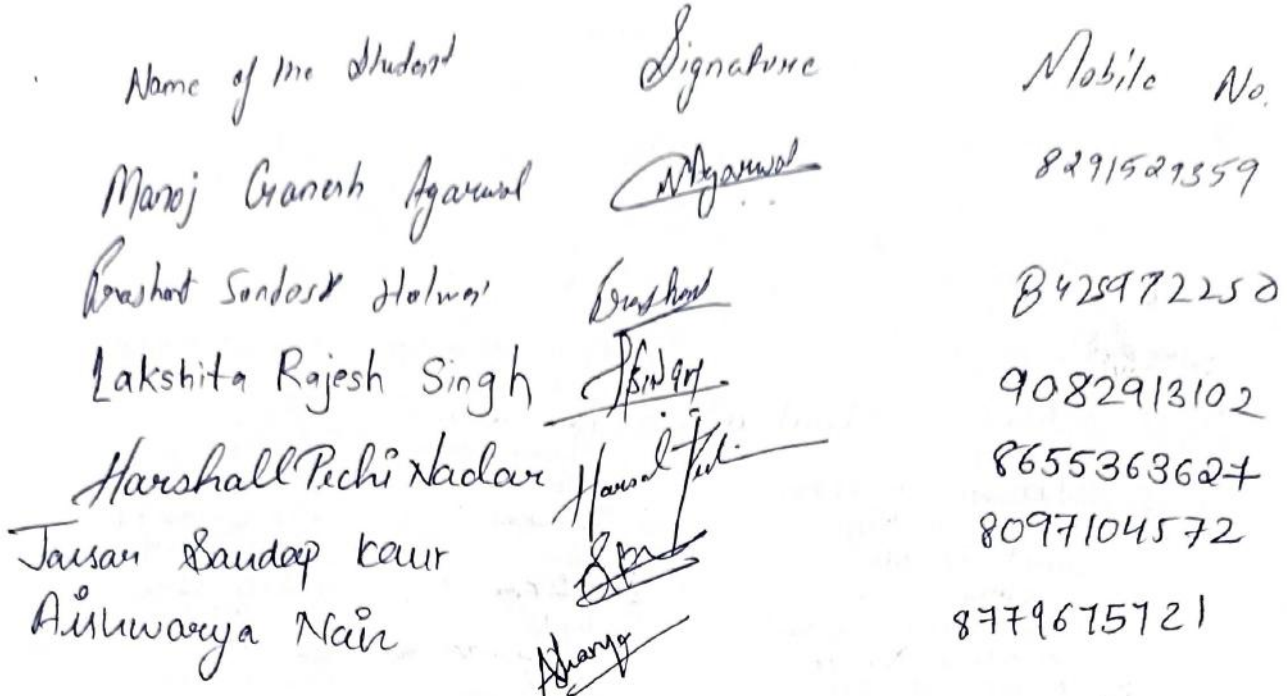 Name of the Student Signature Mobile No.
Manoj Ganesh Agarwal MAgarwal 8291529359
Prashant Halwai Prashant 8425972250
Lakshita Rajesh Singh 9082913102
Harshall Pechi Nadar 8655363627
Kaur 8097104572
Aishwarya Nair 8779675721